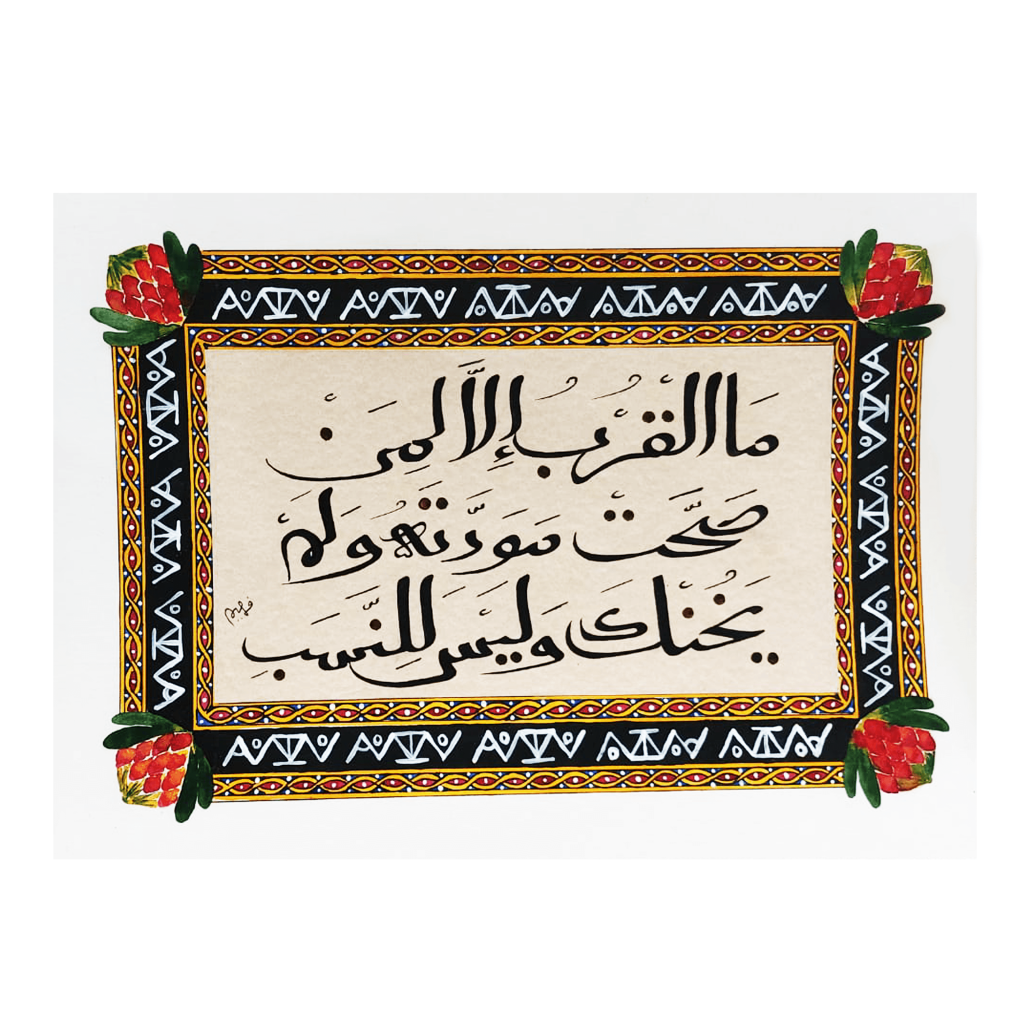 مَا القُرْبُ إِلاَّ لِمَنْ
صَحَّتْ مَوَدَّتَهُ وَلَمْ
يَخُنْكَ وَلَيْسَ لِلنَّسَبِ